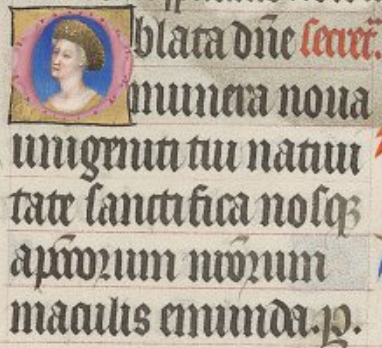 Oblata dn̄e secret̄.
munera noua
unigeniti tui natiui
tate sanctifica nosqꝫ
a pc̄coꝝum nr̄orum
maculis emunda. p.